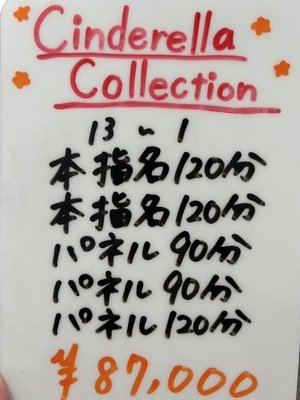 Cinderella
Collection
13〜1
本指名120分
本指名120分
パネル90分
パネル90分
パネル120分
¥87,000